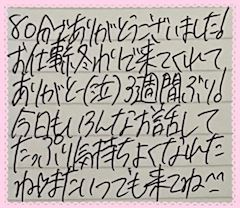 80分ありがとうございました!
お仕事終わりで来てくれて
ありがと(泣)3週間ぶり!
今日もいろんなお話して
たっぷり気持ちよくなれた
ねまたいつでも来てね^^